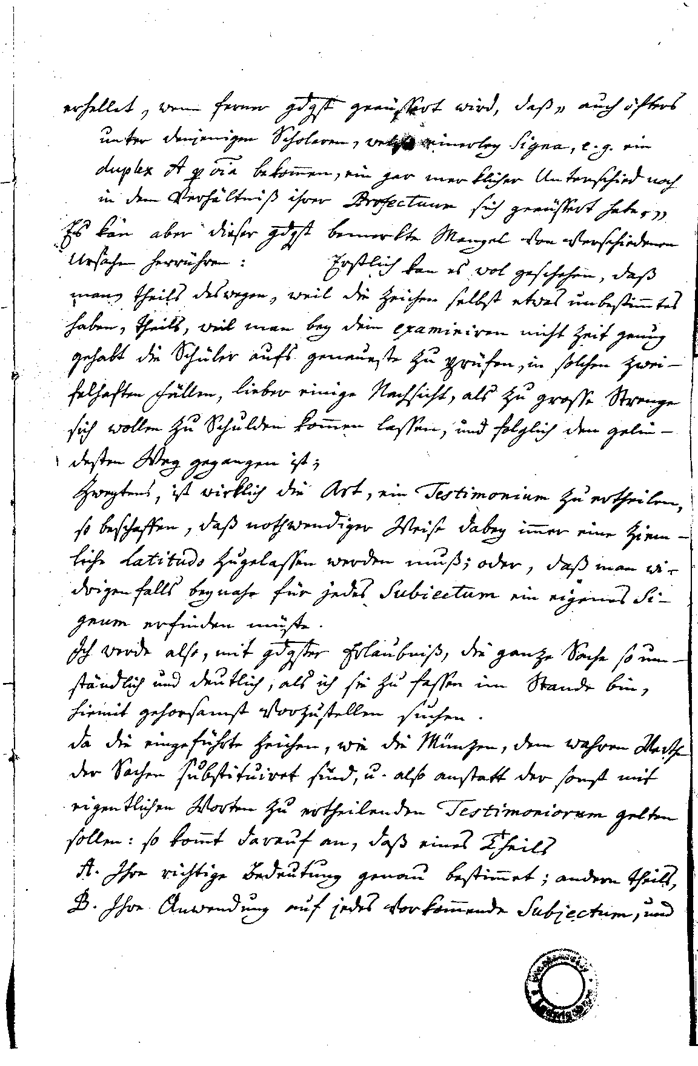 erhellet, wenn ferner gdgst geäussert wird, daß „ auch öfters
unter denjenigen Scholaren, welche einerley Signa, e. g. ein
duplex A p. oia bekommen, ein gar mercklicher Unterschied nach
in dem Verhältniß ihrer Profectuum sich geäussert habe „
Es kan aber dieser gdgst bemerkte Mangel von verschiedenen
Ursachen herrühren: Erstlich kan es wol geschehen, daß
man, theils deswegen, weil die Zeichen selbst etwas unbestimmtes
haben, theils, weil man bey dem examiniren nicht Zeit genug
gehabt die Schüler aufs genaueste zu prüfen, in solchen zwei-
felhaften Fällen, lieber einige Nachsicht, als zu grosse Strenge
sich wollen zu Schulden kommen lassen, und folglich den gelin-
desten Weg gegangen ist;
Zweytens, ist wirklich die Art, ein Testimonium zu ertheilen,
so beschaffen, daß nothwendiger Weise dabey immer eine ziem-
liche Latitudo zugelassen werden muß; oder, daß man wi-
drigenfalls beynahe für jedes Subiectum ein eigenes Si-
gnum erfinden müste.
Ich werde also, mit gdgster Erlaubniß, die ganze Sache so um-
ständlich und deutlich, als ich sie zu fassen im Stande bin,
hiemit gehorsamst vorzustellen suchen.
Da die eingeführte Zeichen, wie die Münzen, dem wahren Werth
der Sachen substituiret sind, u. also anstatt der sonst mit
eigentlichen Worten zu ertheilenden Testimoniorum gelten
sollen: so kommt darauf an, daß eines Theils
A. Ihre richtige Bedeutung genau bestimmet; andern Theils,
B. Ihre Anwendung auf jedes vorkommende Subjectum, und